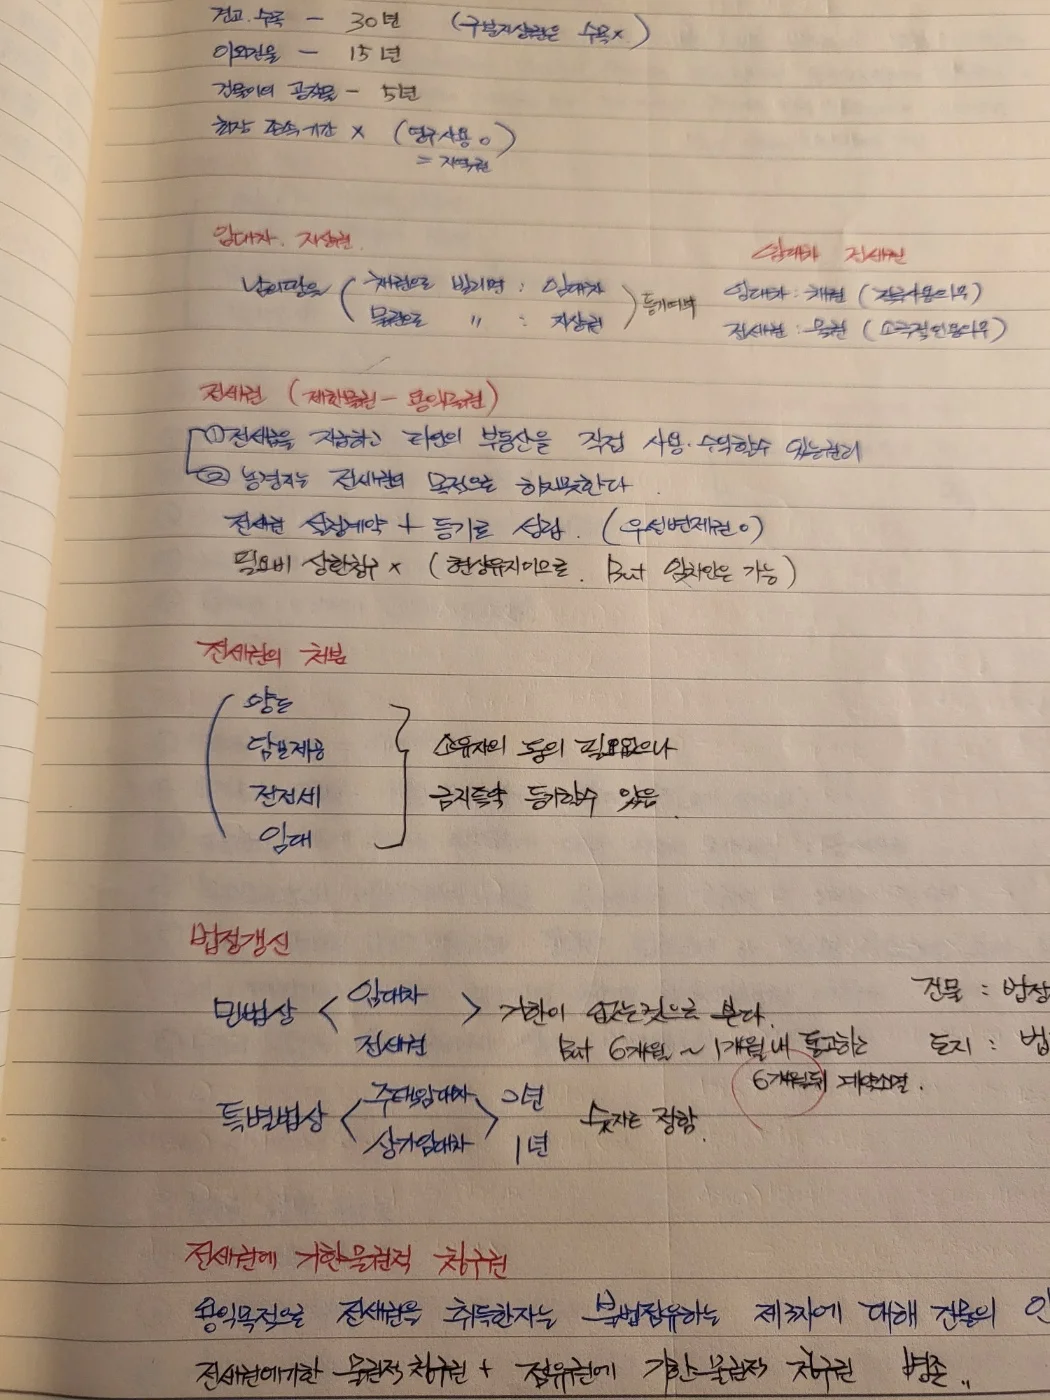 견고. 수목 - 30년 (구분지상권은 수목x)
이외건물 - 15년
건물이외 공작물 - 5년
최장 존속기간 x (영구사용 o)
= 지역권
임대차. 지상권.
임대차 전세권
남의땅을 ( 채권으로 빌리면 : 임대차
물권으로 〃 : 지상권 ) 등기여부
임대차 : 채권 (적극사용의무)
전세권 : 물권 (소극적인용의무)
전세권 (제한물권 - 용익물권)
① 전세금을 지급하고 타인의 부동산을 직접 사용·수익할수 있는권리
② 농경지는 전세권의 목적으로 하지못한다.
전세권 설정계약 + 등기로 성립. (우선변제권 o)
필요비 상환청구 x (현상유지이므로. But 임차인은 가능)
전세권의 처분
양도
담보제공
전전세
임대
소유자의 동의 필요없으나
금지특약 등기할수 있음.
법정갱신
민법상 < 임대차
전세권 > 기한이 없는것으로 본다.
But 6개월 ~ 1개월내 통고하는
6개월뒤 계약소멸.
건물 : 법정
토지 : 법
특별법상 < 주택임대차 2년
상가임대차 1년
숫자로 정함.
전세권에 기한 물권적 청구권
용익목적으로 전세권을 취득한자는 불법점유하는 제3자에 대해 건물의 인
전세권에기한 물권적 청구권 + 점유권에 기한 물권적 청구권 병존..